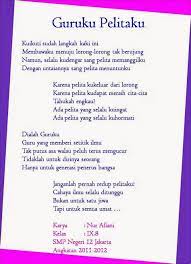 Guruku Pelitaku
Kuikuti sudah langkah kaki ini
Membawaku menuju lorong-lorong tak berujung
Namun, selalu kudengar sang pelita memanggilku
Dengan untaiannya sang pelita menuntunku
Karena pelita kukeluar dari lorong
Karena pelita kudapat cita-cita
Tahukah engkau?
Ada pelita yang selalu kuingat
Ada pelita yang selalu kukagumi
Dialah Guruku
Guru yang memberi setitik ilmu
Tak putus asa walau peluh terus mengucur
Tidaklah untuk dirinya seorang
Hanya untuk generasi penerus bangsa
Janganlah pernah redup pelitaku!
Cahaya ilmu selalu ditunggu
Bukan untuk satu jiwa
Tapi untuk semua umat ...
Karya : Nur Afiani
Kelas : IX.8
SMP Negeri 12 Jakarta
Angkatan 2011-2012